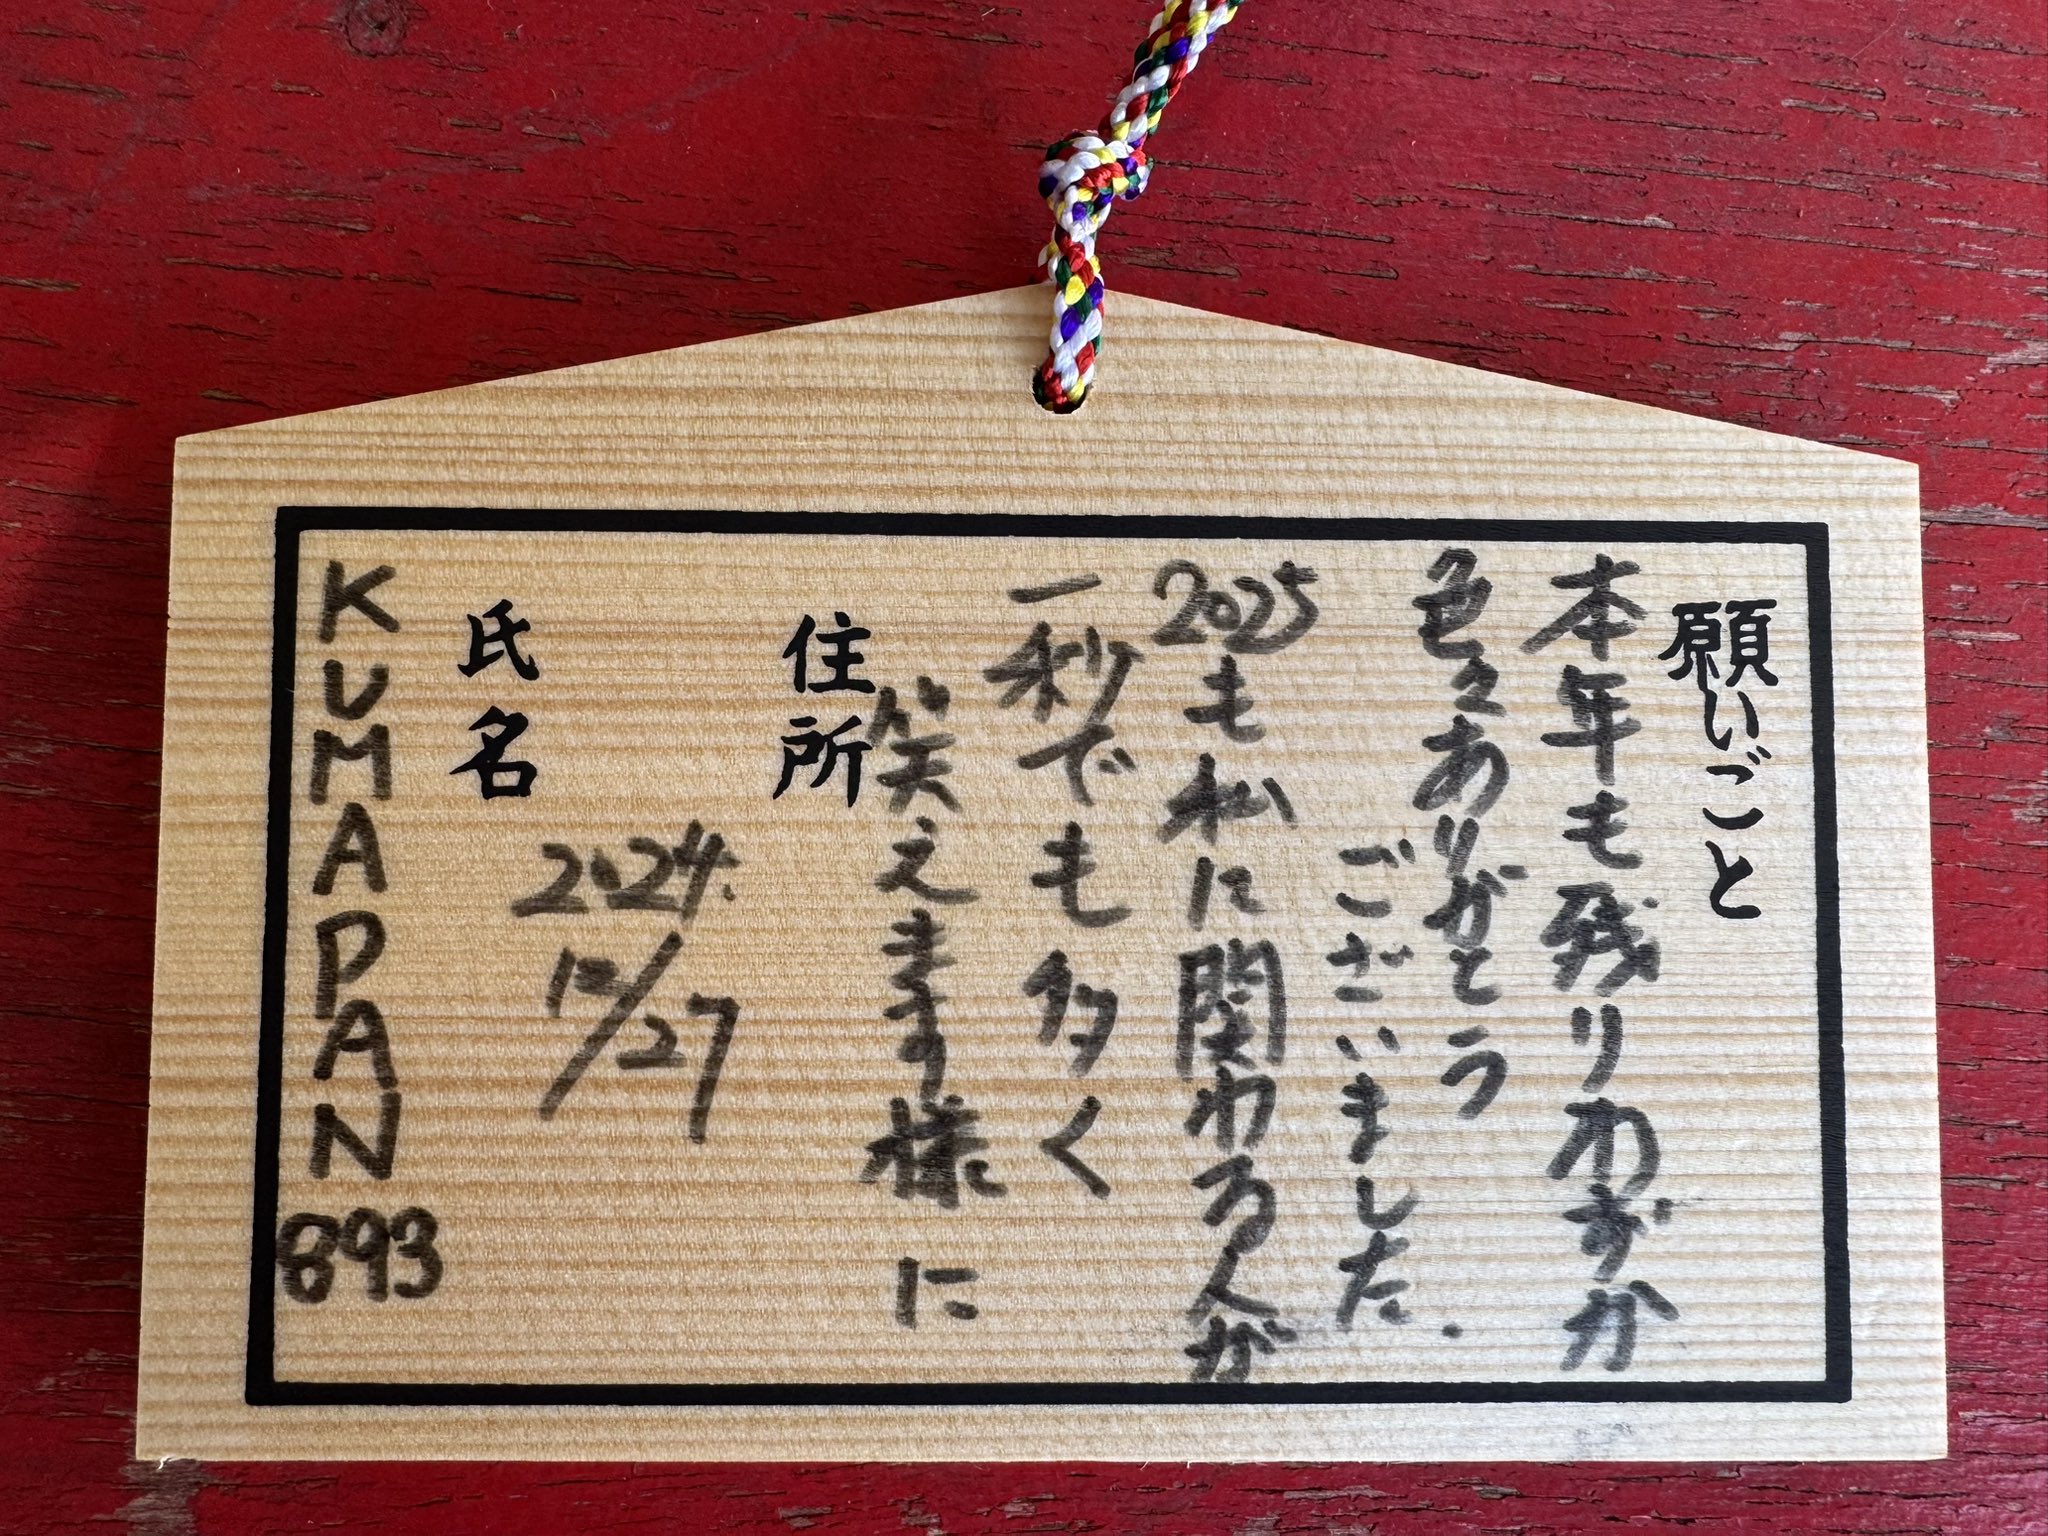 願いごと
本年も残りわずか
色々ありがとう
ございました.
2025も私に関わる人が
一秒でも多く
笑えます様に
住所
2024.
12/27
氏名
KUMAPAN
893